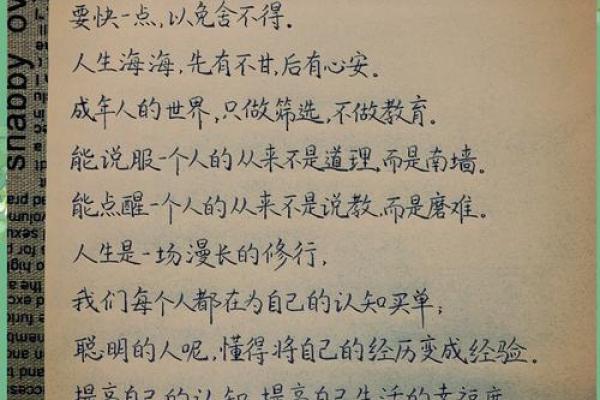 要快一点,以免舍不得。
人生海海,先有不甘,后有心安。
成年人的世界,只做筛选,不做教育。
能说服一个人的从来不是道理,而是南墙。
能点醒一个人的从来不是说教,而是磨难。
人生是一场漫长的修行,
我们每个人都在为自己的认知买单;
聪明的人呢,懂得将自己的经历变成经验。
提高自己的认知,提高自己生活的幸福度
snabby ov